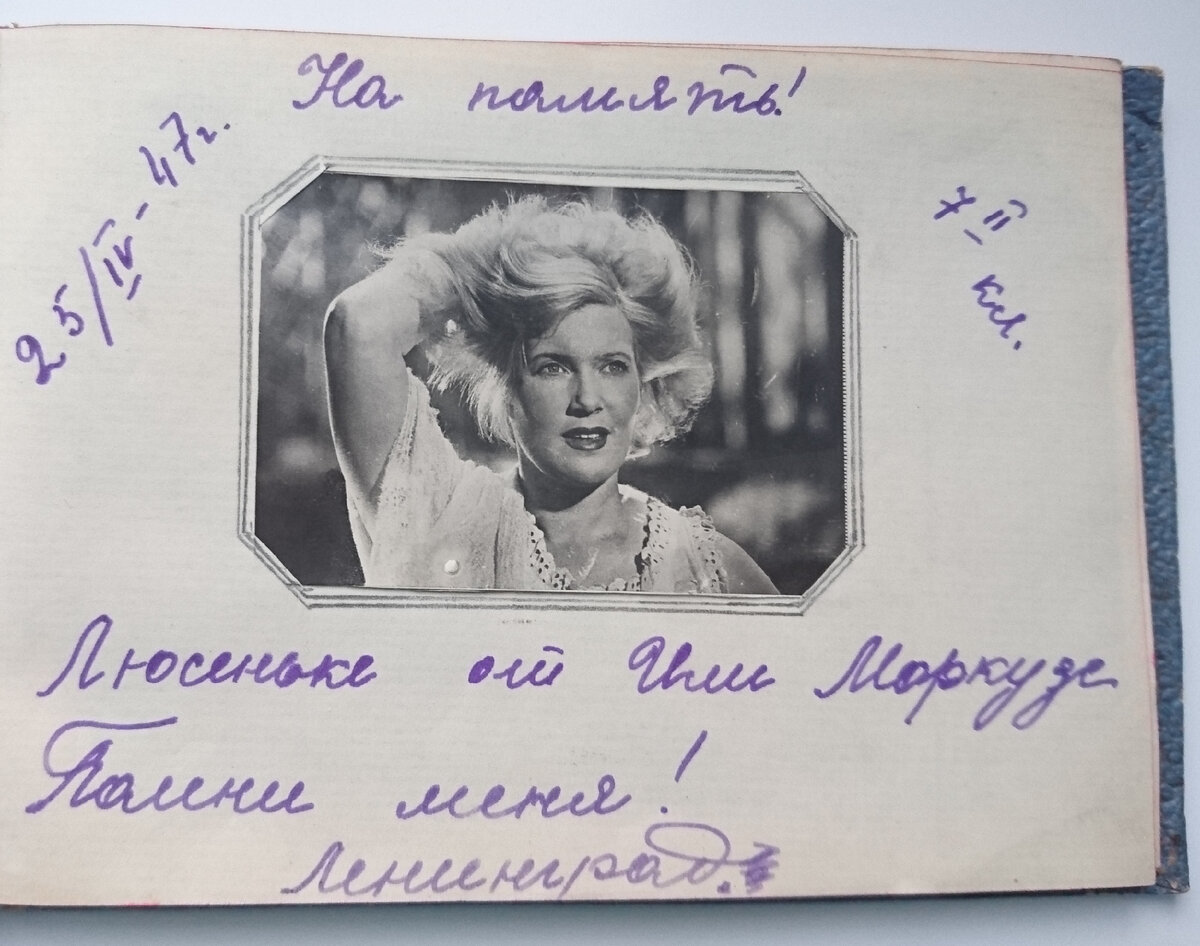 На память!
25/IV-47г.
7 II кл.
Люсеньке от Маркузе
Помни меня!
Ленинград.